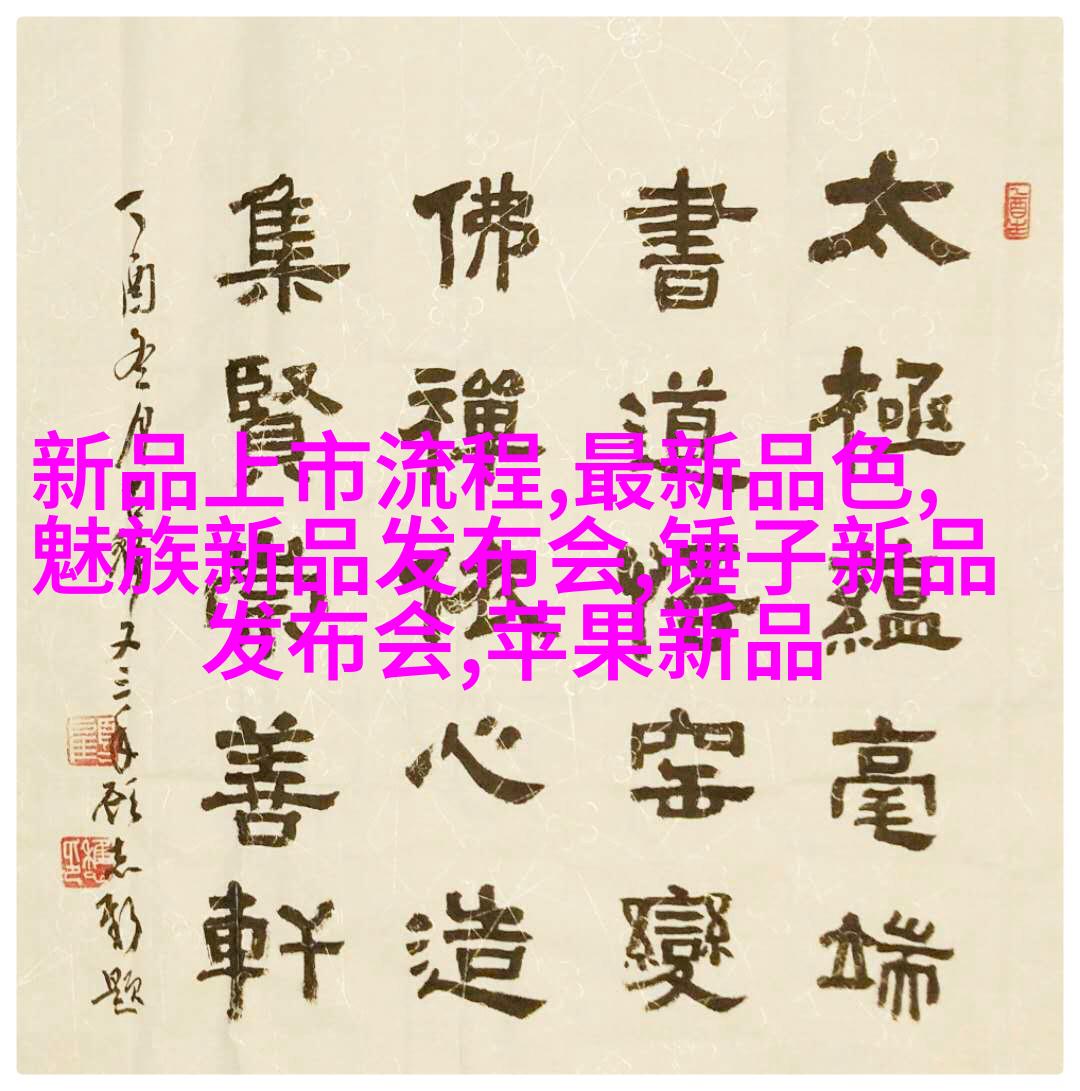 新品上市流程,最新品色,
魅族新品发布会,锤子新品
发布会,苹果新品
太極蘊毫端
書道窑變
佛禪心造
集賢善軒
丁酉冬月
志新題